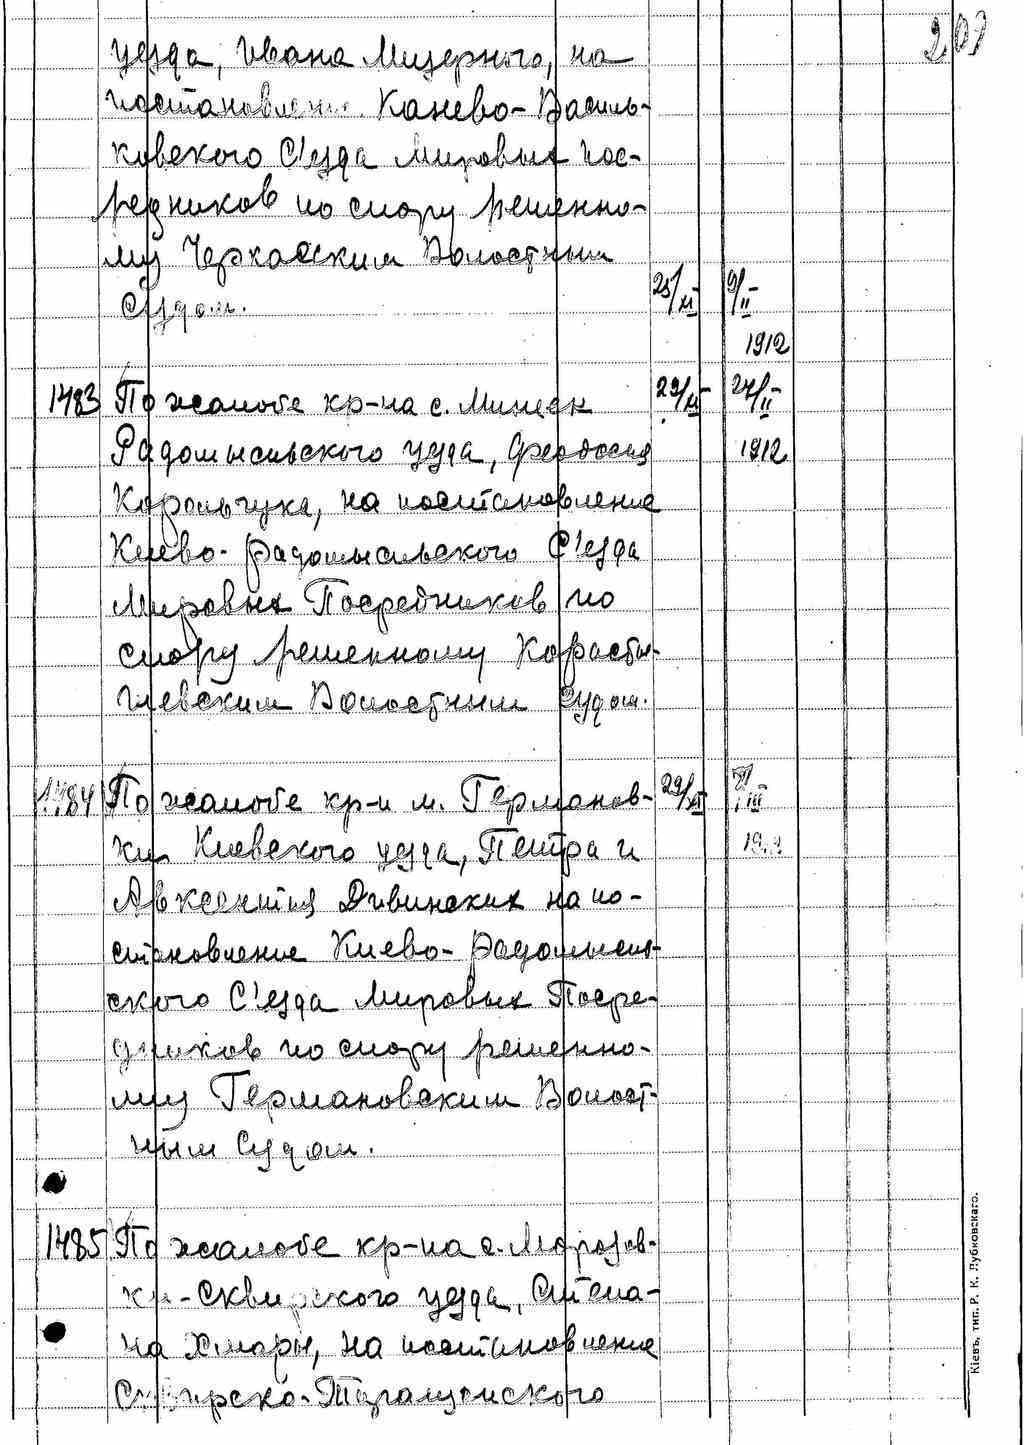 уезда, Ивана Мизерного, на
постановление Канево-Василь-
ковского С'езда Мировых Пос-
редников по спору решенно-
му Черкасским Волостным
Судом. 25/XI 9/II
1912
1483 По жалобе кр-на с. Минеек 29/XI 24/II
Радомысльского уезда, Феодосия 1912
Корольчука, на постановление
Киево-Радомысльского С'езда
Мировых Посредников по
спору решенному Коросты-
шевским Волостным Судом.
1484 По жалобе кр-н м. Германов- 29/XI III
ки Киевского уезда, Петра и
Авксентия Дивинских на по-
становление Киево-Радомысль-
ского С'езда Мировых Посре-
дников по спору решенно-
му Германовским Волост-
ным Судом.
1485 По жалобе кр-на с. Морозов-
ки-Сквирского уезда, Степа-
на Хмары, на постановление
Сквирско-Таращанского
Кіевъ, тип. Р. К. Лубковскаго.